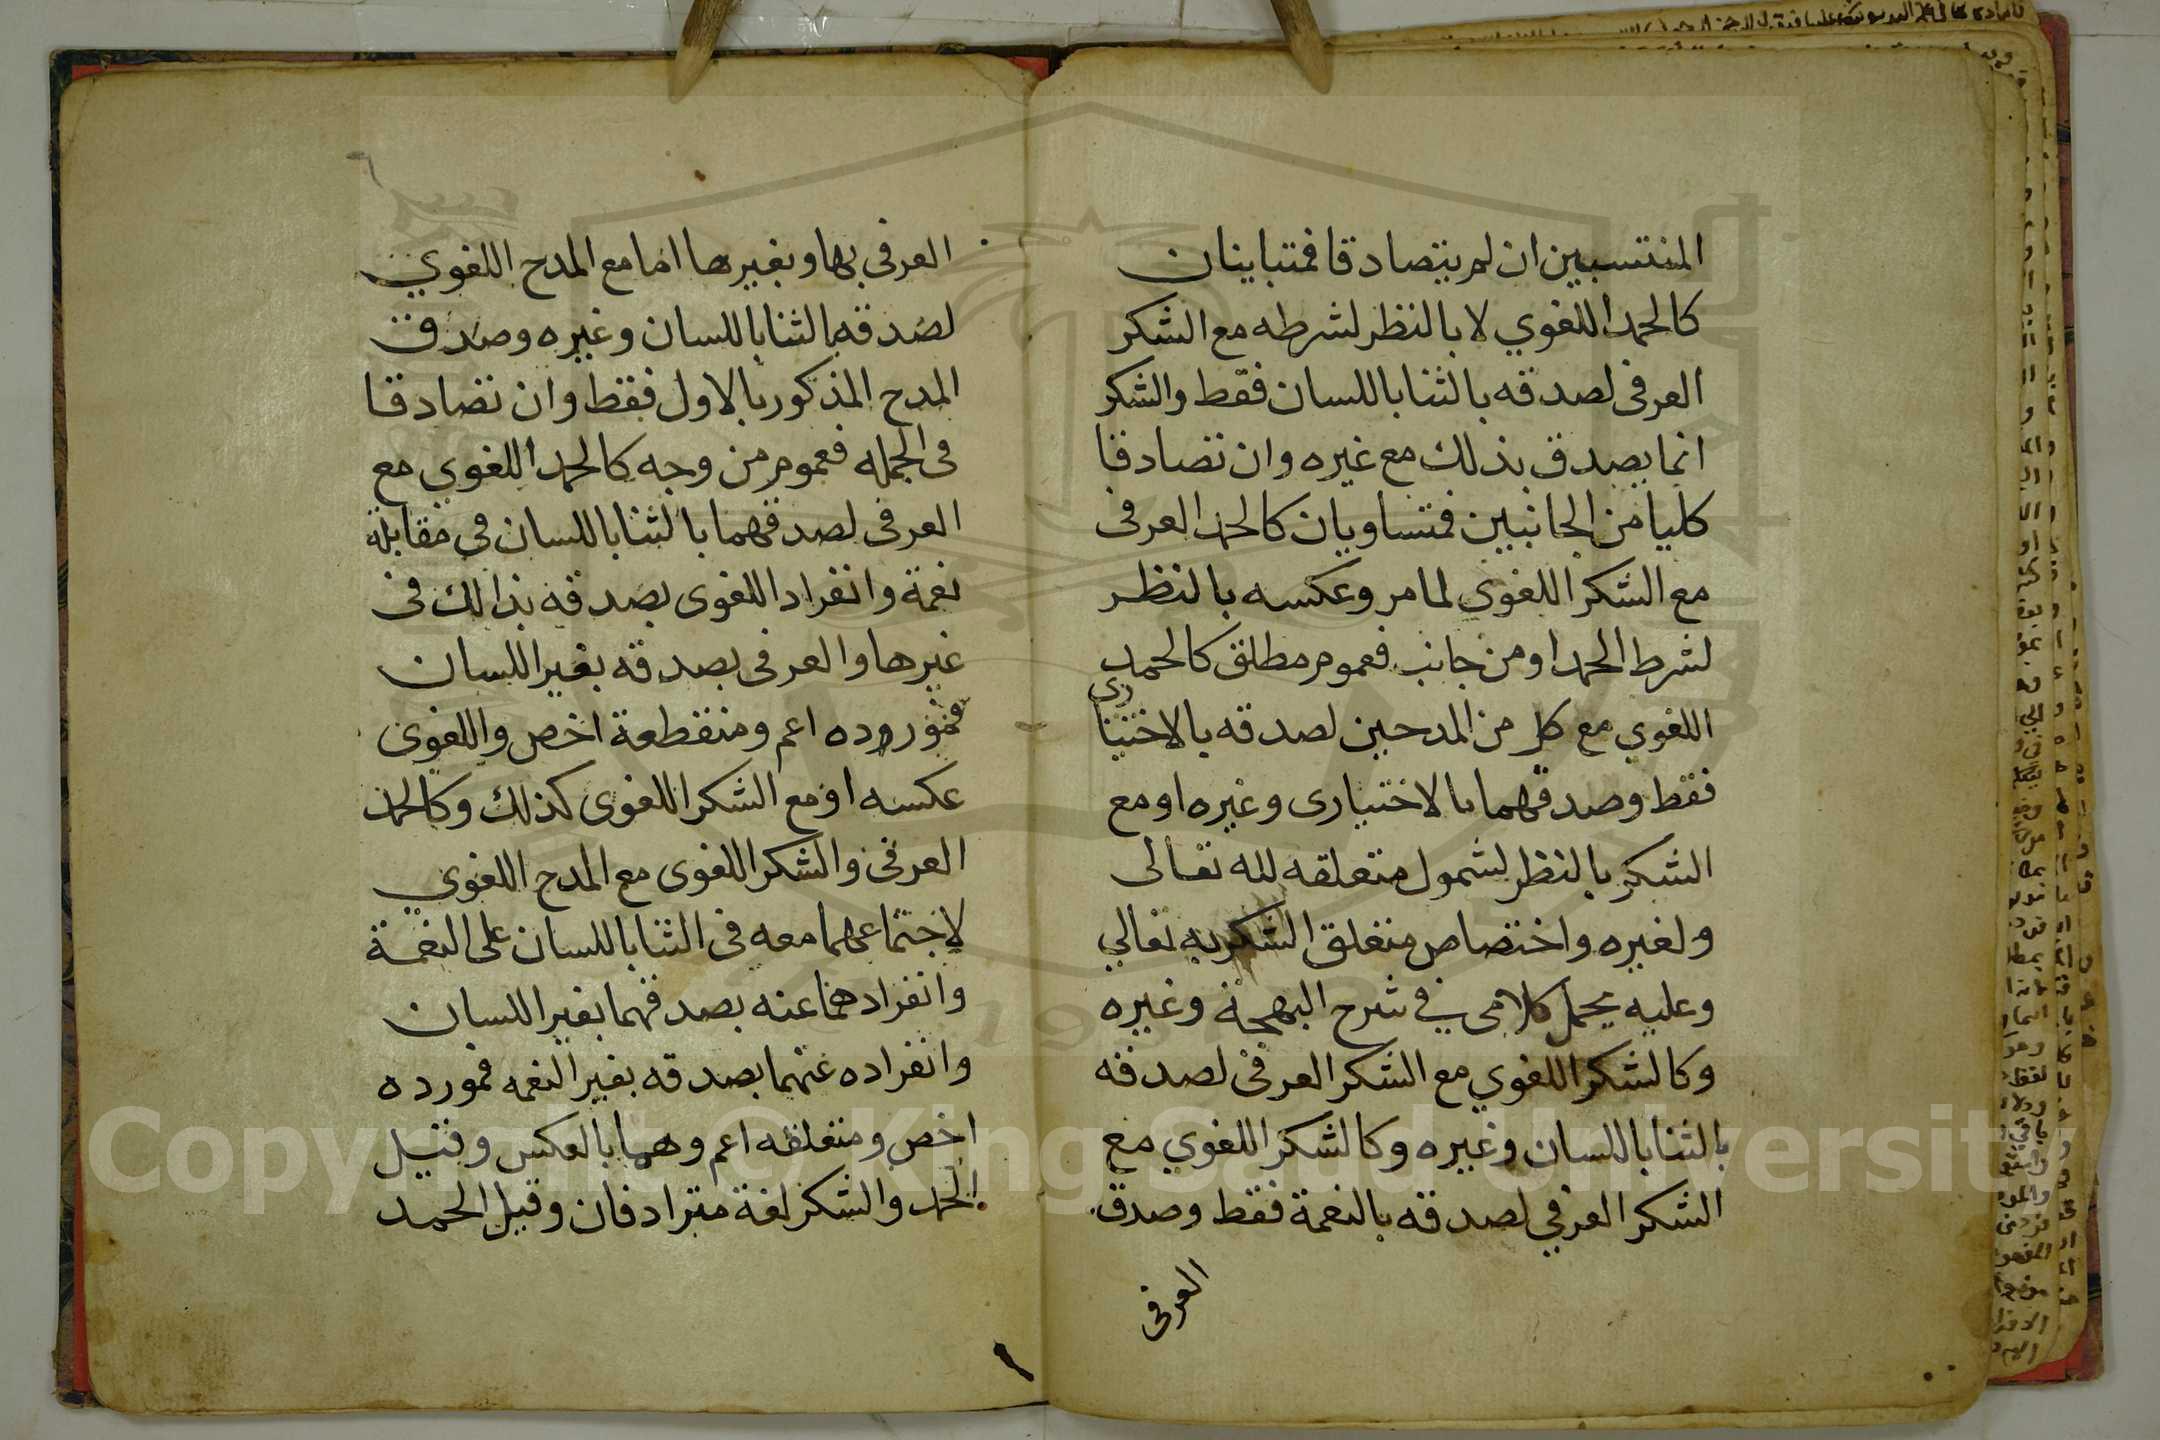 المنتسبين ان لم يتصادقا فمتباينان
كالحمد اللغوي لا بالنظر لشرطه مع الشكر
العرفى لصدقه بالثنا باللسان فقط والشكر
انما يصدق بذلك مع غيره وان تصادقا
كليا من الجانبين فمتساويان كالحمد العرفى
مع الشكر اللغوي لما مر وعكسه بالنظر
لشرط الحمد او من جانب فعموم مطلق كالحمد
اللغوي مع كل من المدحين لصدقه بالاختيا
رى
فقط وصدقهما بالاختيارى وغيره او مع
الشكر بالنظر لشمول متعلقه لله تعالى
ولغيره واختصاص متعلق الشكر به تعالي
وعليه يحمل كلامى في شرح البهجة وغيره
وكالشكر اللغوي مع الشكر العرفى لصدقه
بالثنا باللسان وغيره وكالشكر اللغوي مع
الشكر العرفي لصدقه بالنعمة فقط وصدق
العرفى
العرفى بها وبغيرها اما مع المدح اللغوي
لصدقه بالثنا باللسان وغيره وصدق
المدح المذكور بالاول فقط وان تصادقا
فى الجمله فعموم من وجه كالحمد اللغوي مع
العرفى لصدقهما بالثنا باللسان في مقابلة
نعمة وانفراد اللغوى بصدقه بذالك فى
غيرها والعرفى بصدقه بغير اللسان
فمورده اعم ومتعلقه اخص واللغوى
عكسه او مع الشكر اللغوى كذلك وكالحمد
العرفى والشكر اللغوى مع المدح اللغوي
لاجتماعهما معه فى الثنا باللسان على النعمة
وانفرادهما عنه بصدقهما بغير اللسان
وانفراده عنهما بصدقه بغير النعمه فمورده
اخص ومتعلقه اعم وهما بالعكس وقيل
الحمد والشكر لغة مترادفان وقيل الحمد
١
Copyright © King Saud University